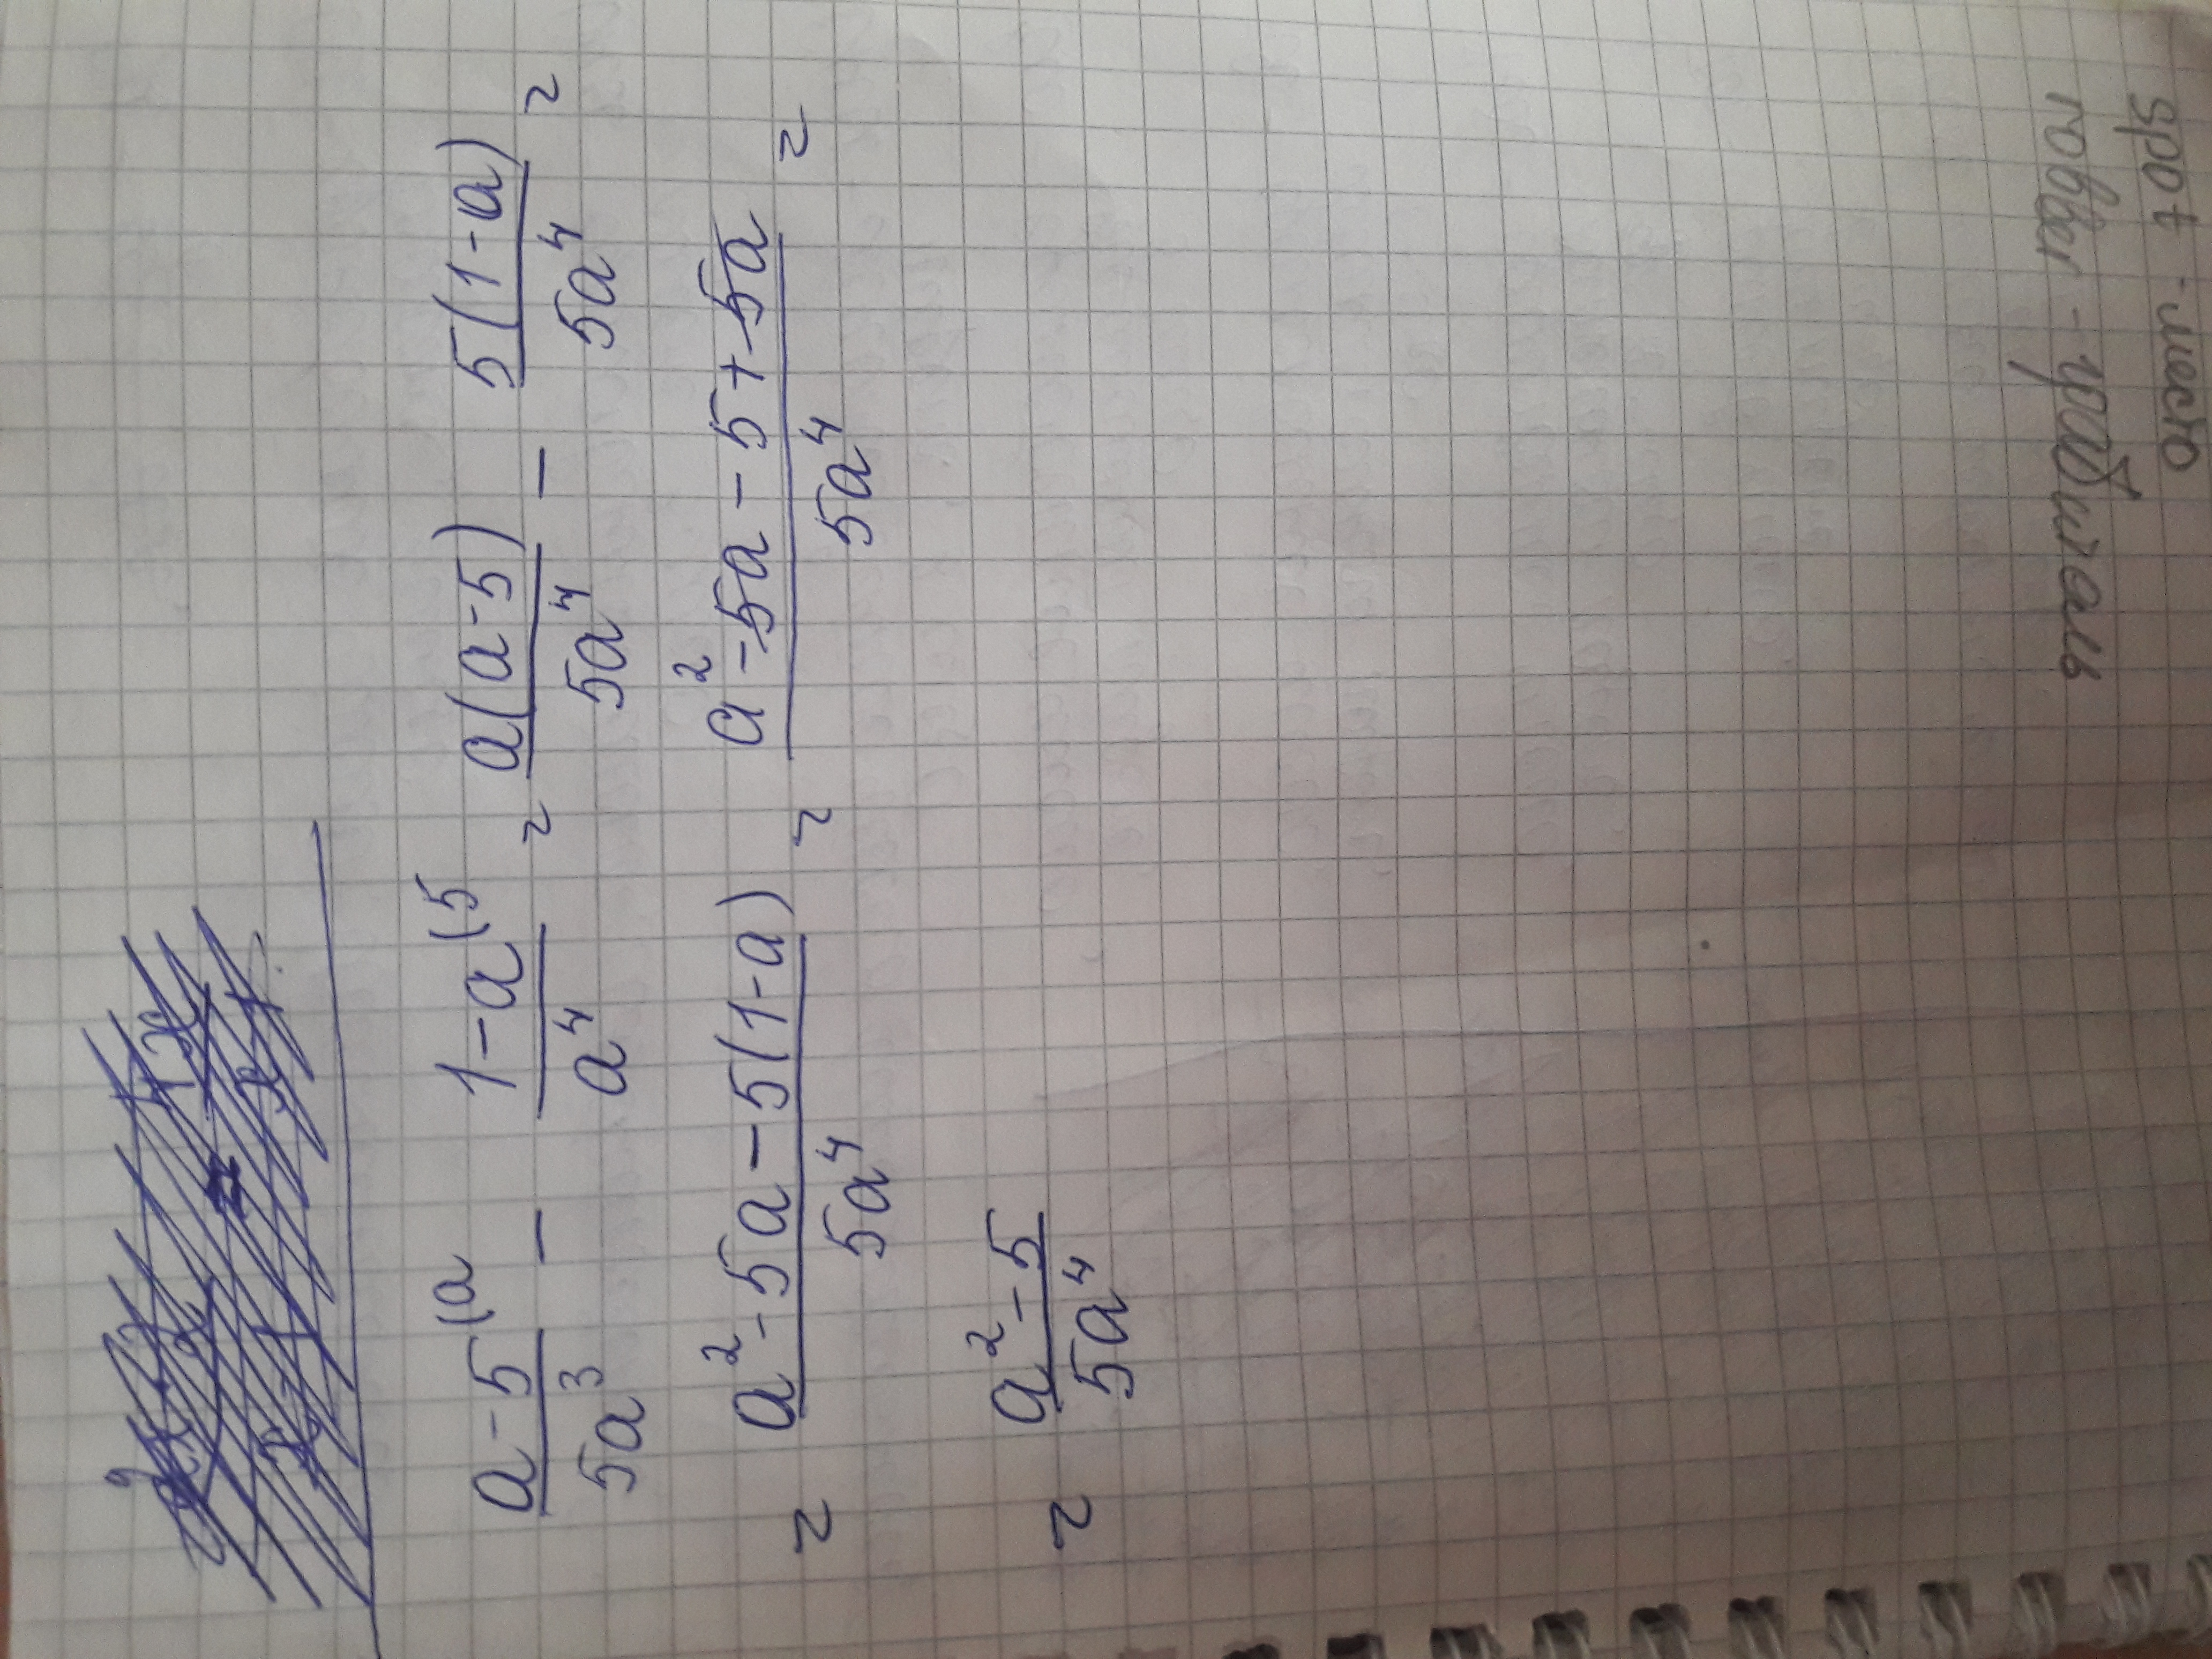 (a-5)/(5a³) ⁽ᵃ - (1-a)/(a⁴) ⁽⁵ = a(a-5)/(5a⁴) - 5(1-a)/(5a⁴) =
= (a²-5a-5(1-a))/(5a⁴) = (a²-5a-5+5a)/(5a⁴) =
= (a²-5)/(5a⁴)
spot - место